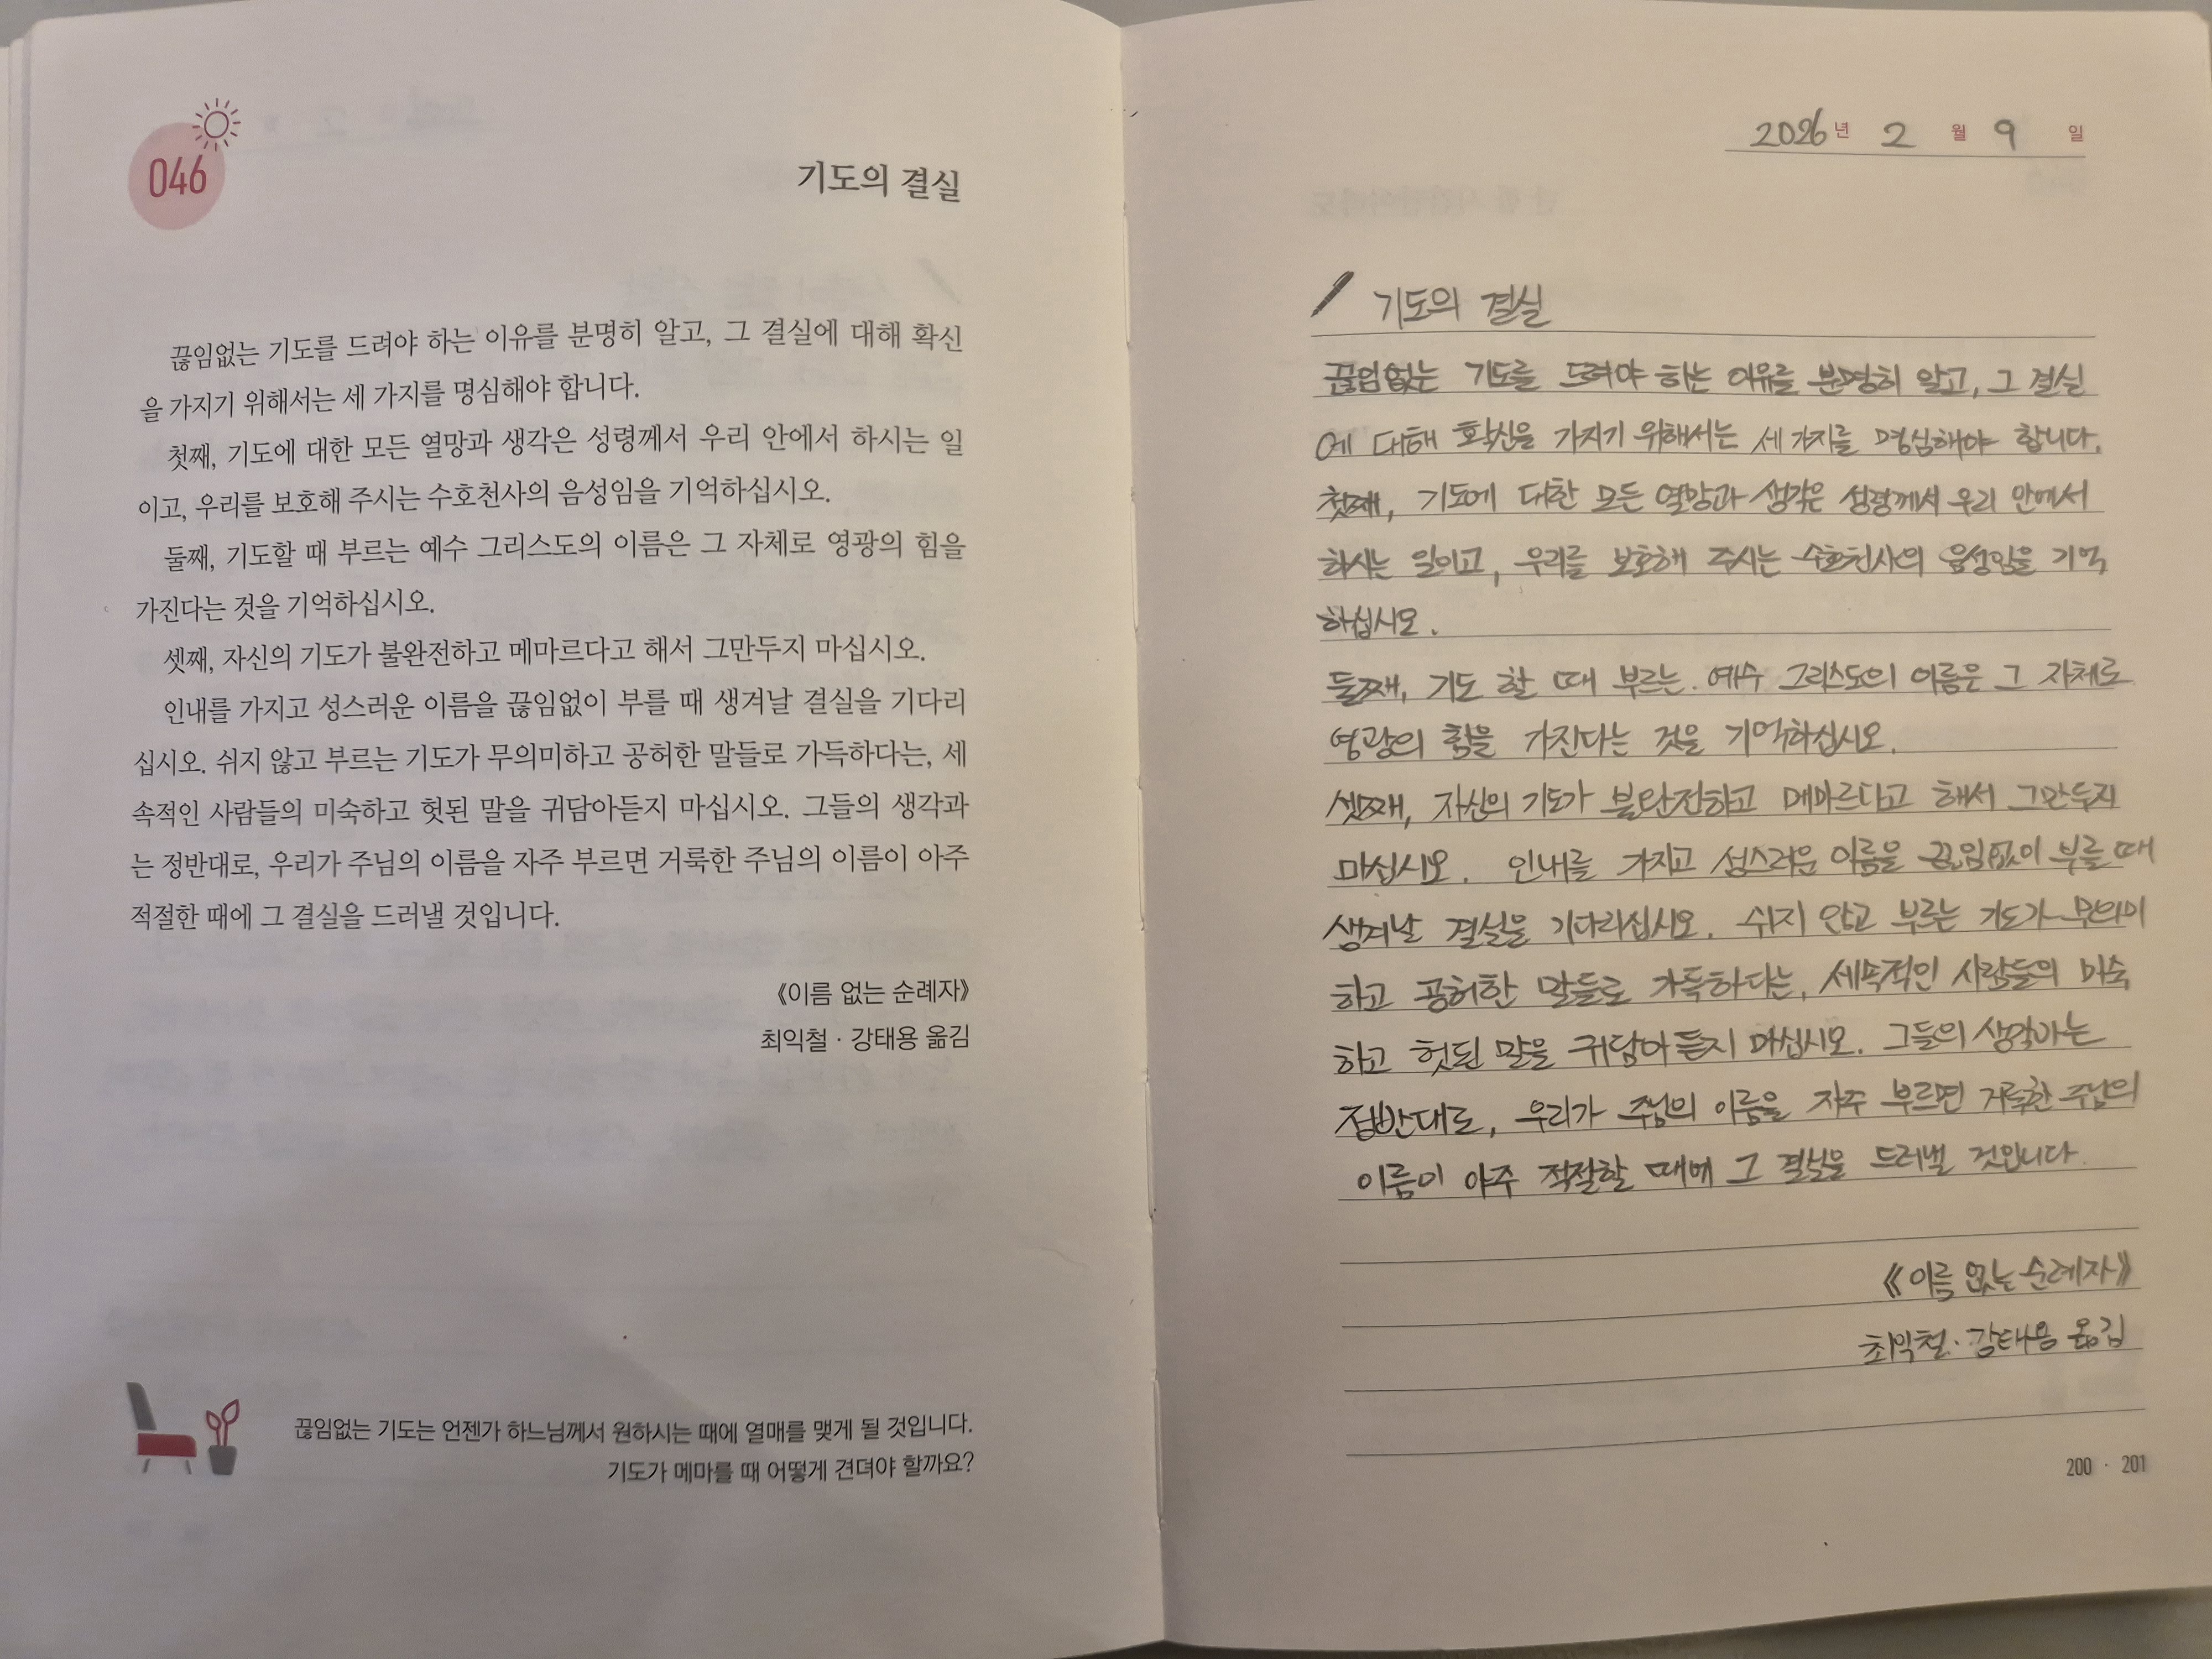 046
기도의 결실
끊임없는 기도를 드려야 하는 이유를 분명히 알고, 그 결실에 대해 확신
을 가지기 위해서는 세 가지를 명심해야 합니다.
첫째, 기도에 대한 모든 열망과 생각은 성령께서 우리 안에서 하시는 일
이고, 우리를 보호해 주시는 수호천사의 음성임을 기억하십시오.
둘째, 기도할 때 부르는 예수 그리스도의 이름은 그 자체로 영광의 힘을
가진다는 것을 기억하십시오.
셋째, 자신의 기도가 불완전하고 메마르다고 해서 그만두지 마십시오.
인내를 가지고 성스러운 이름을 끊임없이 부를 때 생겨날 결실을 기다리
십시오. 쉬지 않고 부르는 기도가 무의미하고 공허한 말들로 가득하다는, 세
속적인 사람들의 미숙하고 헛된 말을 귀담아듣지 마십시오. 그들의 생각과
는 정반대로, 우리가 주님의 이름을 자주 부르면 거룩한 주님의 이름이 아주
적절한 때에 그 결실을 드러낼 것입니다.
《이름 없는 순례자》
최익철 · 강태용 옮김
끊임없는 기도는 언젠가 하느님께서 원하시는 때에 열매를 맺게 될 것입니다.
기도가 메마를 때 어떻게 견뎌야 할까요?
2026년 2 월 9 일
기도의 결실
끊임없는 기도를 드려야 하는 이유를 분명히 알고, 그 결실
에 대해 확신을 가지기 위해서는 세 가지를 명심해야 합니다.
첫째, 기도에 대한 모든 열망과 생각은 성령께서 우리 안에서
하시는 일이고, 우리를 보호해 주시는 수호천사의 음성임을 기억
하십시오.
둘째, 기도 할 때 부르는 예수 그리스도의 이름은 그 자체로
영광의 힘을 가진다는 것을 기억하십시오.
셋째, 자신의 기도가 불완전하고 메마르다고 해서 그만두지
마십시오. 인내를 가지고 성스러운 이름을 끊임없이 부를 때
생겨날 결실을 기다리십시오. 쉬지 않고 부르는 기도가 무의미
하고 공허한 말들로 가득하다는, 세속적인 사람들의 미숙
하고 헛된 말을 귀담아 듣지 마십시오. 그들의 생각과는
정반대로, 우리가 주님의 이름을 자주 부르면 거룩한 주님의
이름이 아주 적절할 때에 그 결실을 드러낼 것입니다.
《이름 없는 순례자》
최익철 · 강태용 옮김
200 · 201